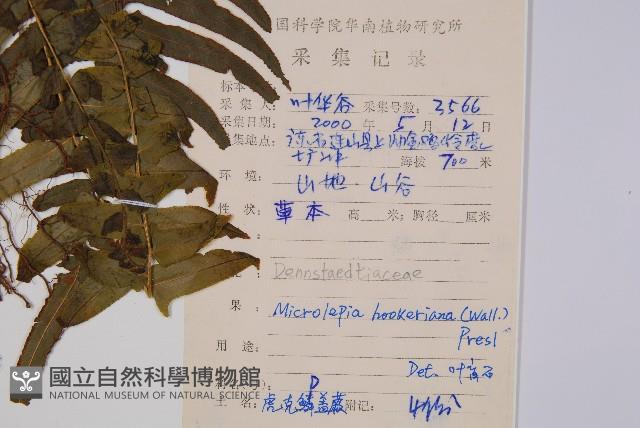 国科学院华南植物研究所
采集记录
标本
采集人: 叶华谷 采集号数: 3566
采集日期: 2000年 5月 12日
集地点:
海拔 700 米
环境: 山地 山谷
性状: 草本 高 米; 胸径 厘米
Dennstaedtiaceae
果: Microlepia hookeriana (Wall.)
Presl
用途:
Det.
土名: 虎克鳞盖蕨 附记:
國立自然科學博物館
NATIONAL MUSEUM OF NATURAL SCIENCE